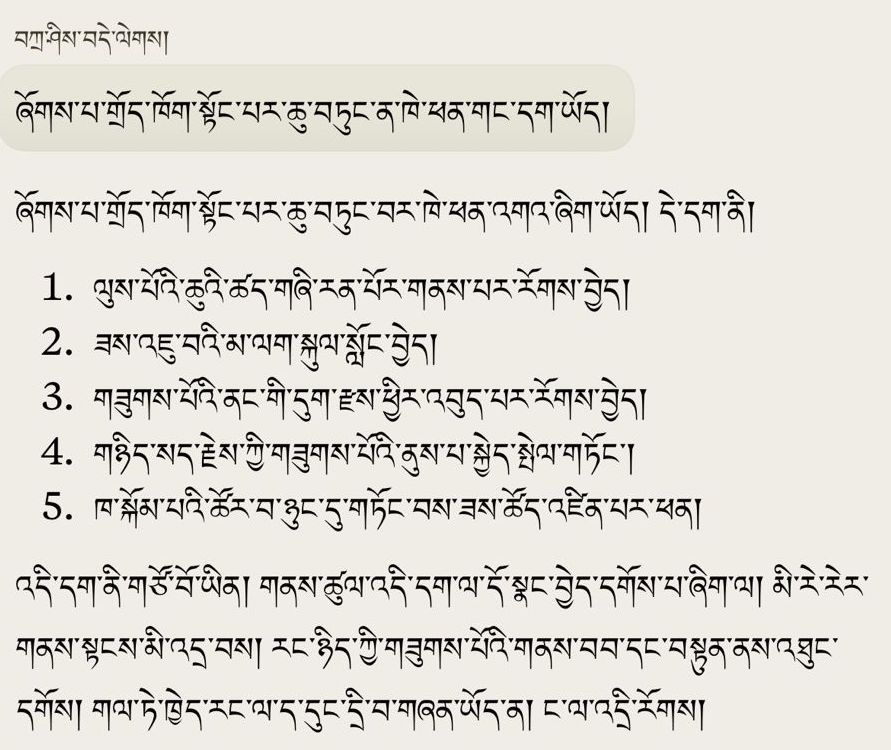 བཀྲ་ཤིས་བདེ་ལེགས།
ཞོགས་པ་གྲོད་ཁོག་སྟོང་པར་ཆུ་བཏུང་ན་ཁེ་ཕན་གང་དག་ཡོད།
ཞོགས་པ་གྲོད་ཁོག་སྟོང་པར་ཆུ་བཏུང་བར་ཁེ་ཕན་འགའ་ཞིག་ཡོད། དེ་དག་ནི།
1. ལུས་པོའི་ཆུའི་ཚད་གཞི་རན་པོར་གནས་པར་རོགས་བྱེད།
2. ཟས་འཇུ་བའི་མ་ལག་སྐུལ་སློང་བྱེད།
3. གཟུགས་པོའི་ནང་གི་དུག་རྫས་ཕྱིར་འབུད་པར་རོགས་བྱེད།
4. གཉིད་སད་རྗེས་ཀྱི་གཟུགས་པོའི་ནུས་པ་སྐྱེད་སྤེལ་གཏོང་།
5. ཁ་སྐོམ་པའི་ཚོར་བ་ཉུང་དུ་གཏོང་བས་ཟས་ཚོད་འཛིན་པར་ཕན།
འདི་དག་ནི་གཙོ་བོ་ཡིན། གནས་ཚུལ་འདི་དག་ལ་དོ་སྣང་བྱེད་དགོས་པ་ཞིག་ལ། མི་རེ་རེར་
གནས་སྟངས་མི་འདྲ་བས། རང་ཉིད་ཀྱི་གཟུགས་པོའི་གནས་བབ་དང་བསྟུན་ནས་འཐུང་
དགོས། གལ་ཏེ་ཁྱེད་རང་ལ་ད་དུང་དྲི་བ་གཞན་ཡོད་ན། ང་ལ་འདྲི་རོགས།